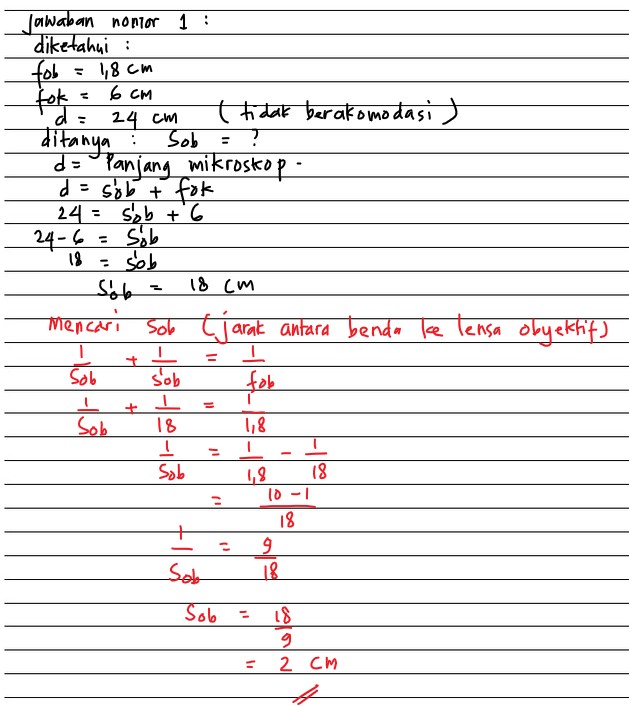 Jawaban nomor 1 :
diketahui :
fob = 1,8 cm
fok = 6 cm
d = 24 cm (tidak berakomodasi)
ditanya : Sob = ?
d = Panjang mikroskop -
d = s'ob + fok
24 = s'ob + 6
24 - 6 = s'ob
18 = s'ob
s'ob = 18 cm
Mencari Sob (jarak antara benda ke lensa obyektif)
1/Sob + 1/s'ob = 1/fob
1/Sob + 1/18 = 1/1,8
1/Sob = 1/1,8 - 1/18
= 10 - 1/18
1/Sob = 9/18
Sob = 18/9
= 2 cm